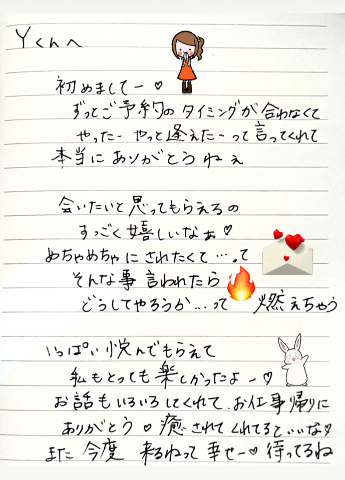 Yくんへ
初めましてー♡
ずっとご予約のタイミングが合わなくて
やったーやっと逢えたーって言ってくれて
本当にありがとうねぇ
会いたいと思ってもらえるの
すっごく嬉しいなぁ♡
めちゃめちゃにされたくて…って
そんな事言われたら
どうしてやろうか…って 燃えちゃう
いっぱい悦んでもらえて
私もとっても楽しかったよー♡
お話もいろいろしてくれて、お仕事帰りに
ありがとう♡癒されてくれてるといいな♡
また今度 来るねって幸せー♡待ってるね